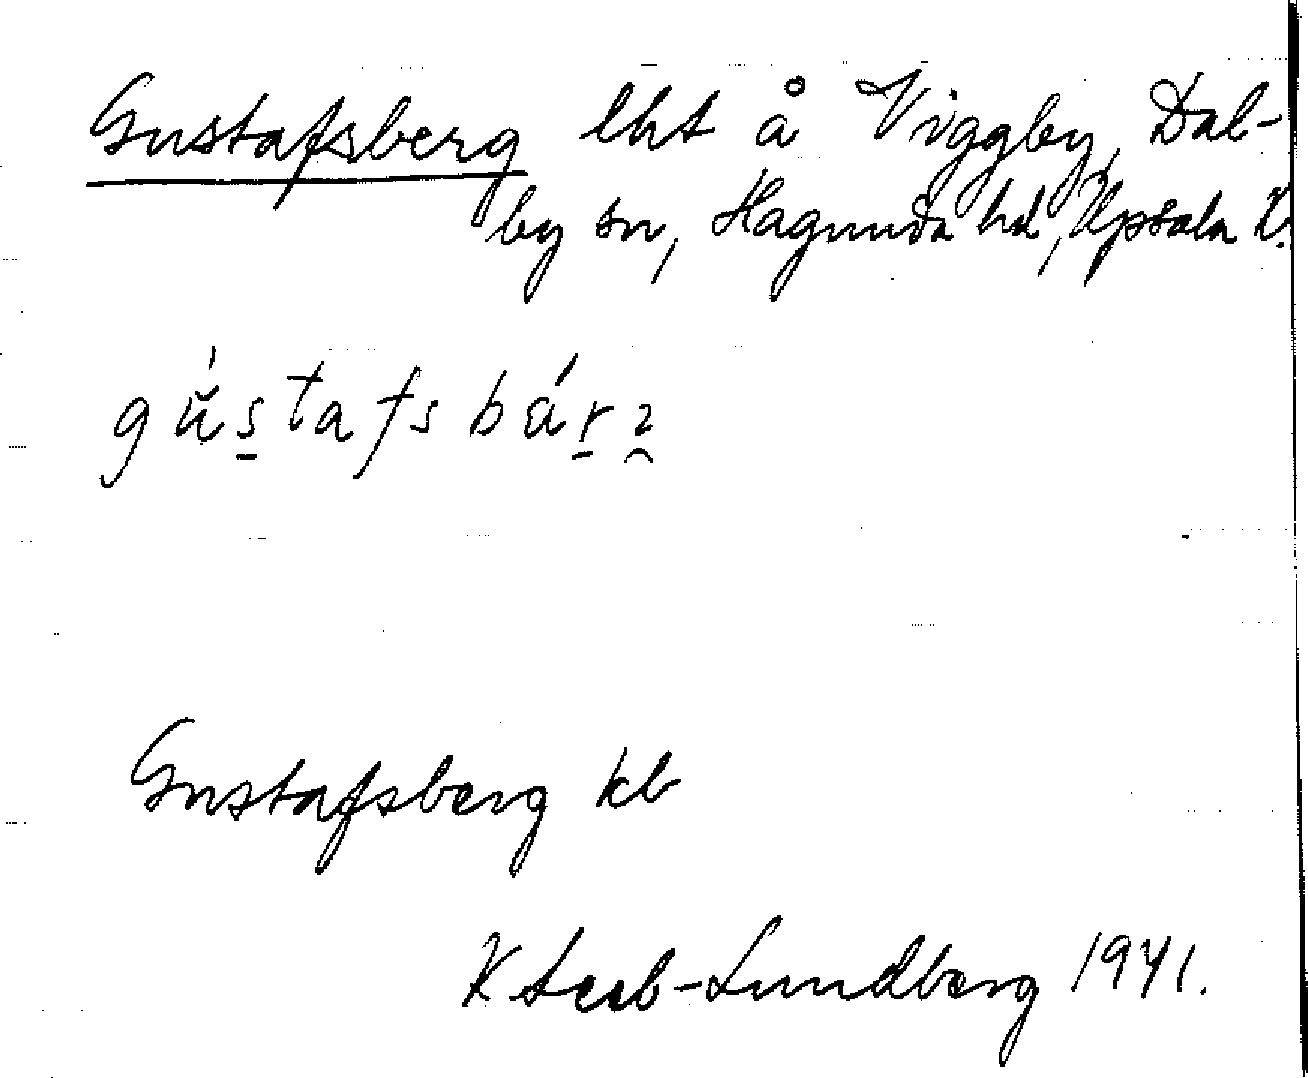 Gustafsberg lht å Viggby, Dal-
by sn, Hagunda hd, Upsala l.
gústafsbárꝛ
Gustafsberg kb
K -Lundberg 1941.